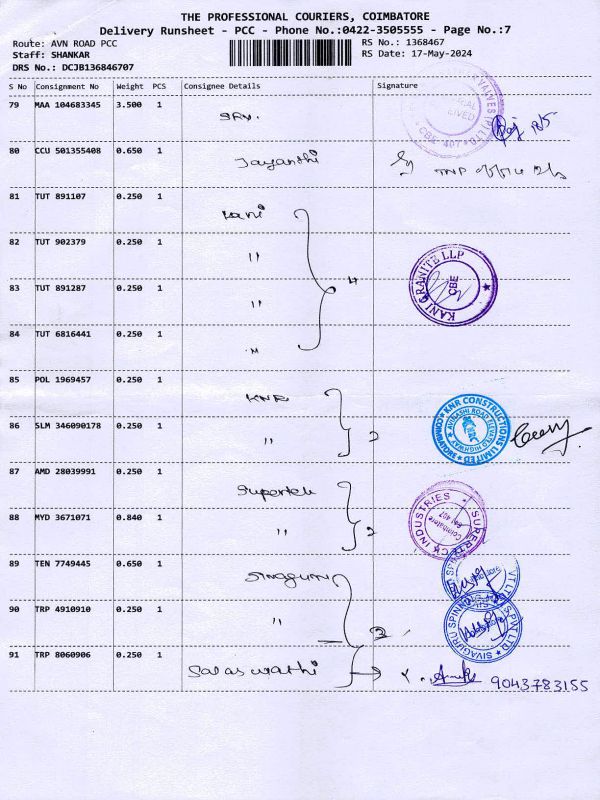 THE PROFESSIONAL COURIERS, COIMBATORE
Delivery Runsheet - PCC - Phone No.:0422-3505555 - Page No.:7
Route: AVN ROAD PCC
RS No.: 1368467
Staff: SHANKAR
RS Date: 17-May-2024
DRS No.: DCJB136846707
S No Consignment No Weight PCS Consignee Details Signature
79 MAA 104683345 3.500 1
CBE 407
80 CCU 501355408 0.650 1 Jayanthi
81 TUT 891107 0.250 1 Kani
82 TUT 902379 0.250 1 "
83 TUT 891287 0.250 1 " 4
KANI GRANITE LLP
CBE
84 TUT 6816441 0.250 1 "
85 POL 1969457 0.250 1 KNR
86 SLM 346090178 0.250 1 " 2
KNR CONSTRUCTIONS LIMITED
COIMBATORE
AVINASHI ROAD ELEVATED HIGHWAY
87 AMD 28039991 0.250 1 Supertek
88 MYD 3671071 0.840 1 " 2
SUPERTECK INDUSTRIES
Coimbatore
641 407
89 TEN 7749445 0.650 1 Sivaguru
90 TRP 4910910 0.250 1 "
SIVAGURU SPINNING
S.PVT LTD
91 TRP 8060906 0.250 1 Saraswathi
9043783155